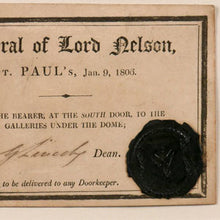 eral of Lord Nelson,
T. PAUL's, Jan. 9, 1806.
HE BEARER, AT THE SOUTH DOOR, TO THE
GALLERIES UNDER THE DOME;
Lincoln Dean.
to be delivered to any Doorkeeper.